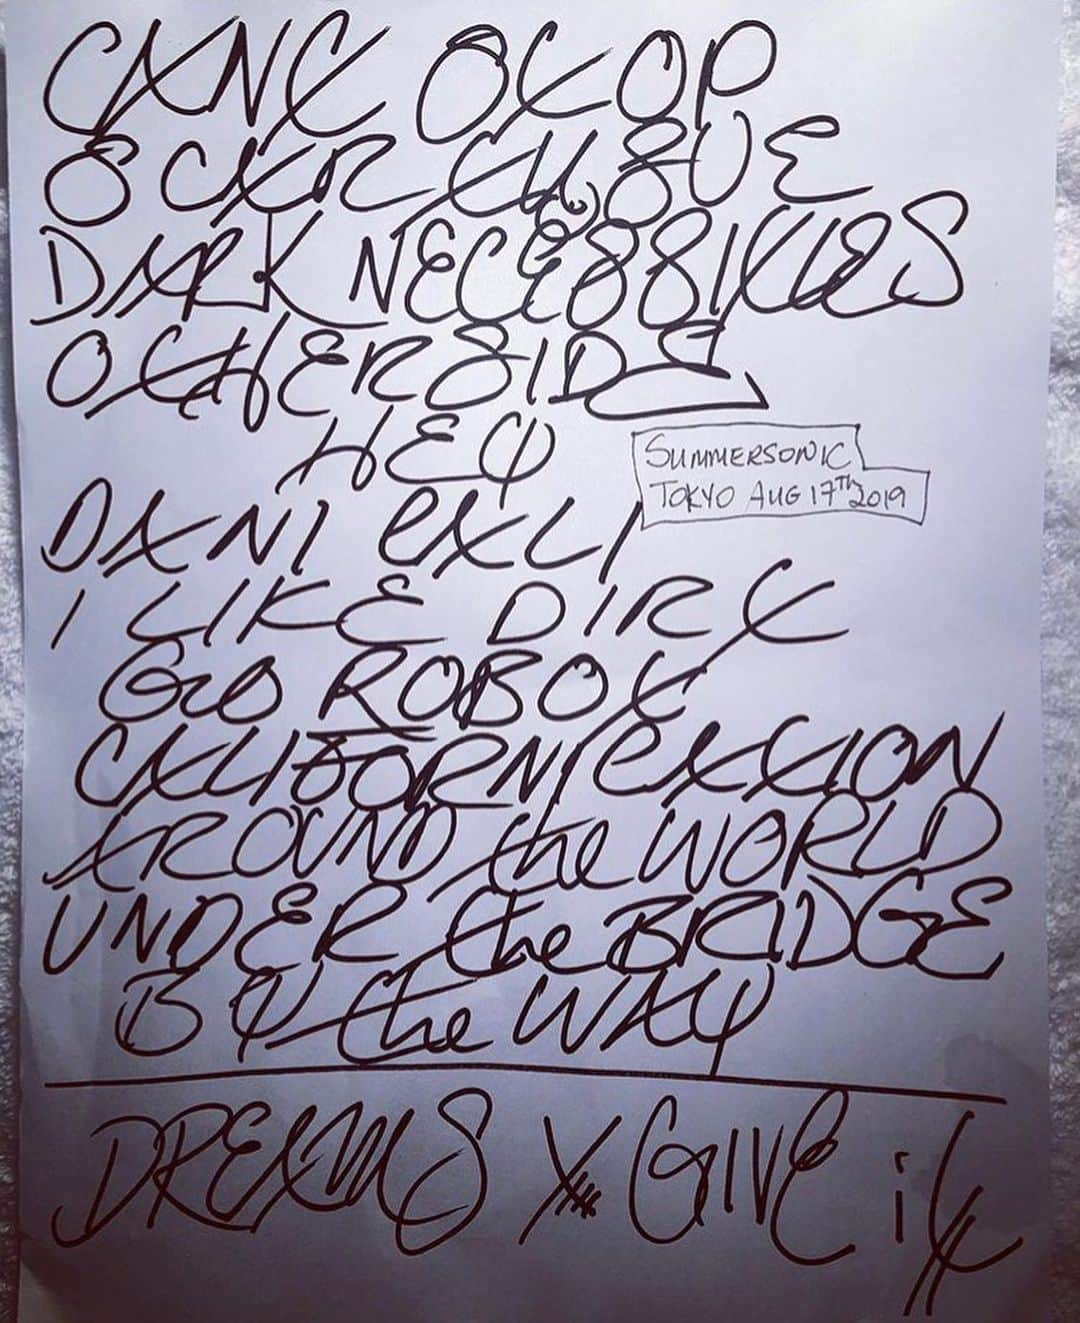 CAN'T STOP
SCAR TISSUE
DARK NECESSITIES
OTHERSIDE
HEY
SUMMERSONIC
TOKYO AUG 17TH 2019
DANI CALI
I LIKE DIRT
GO ROBOT
CALIFORNICATION
AROUND the WORLD
UNDER the BRIDGE
BY the WAY
DREAMS X GIVE iT